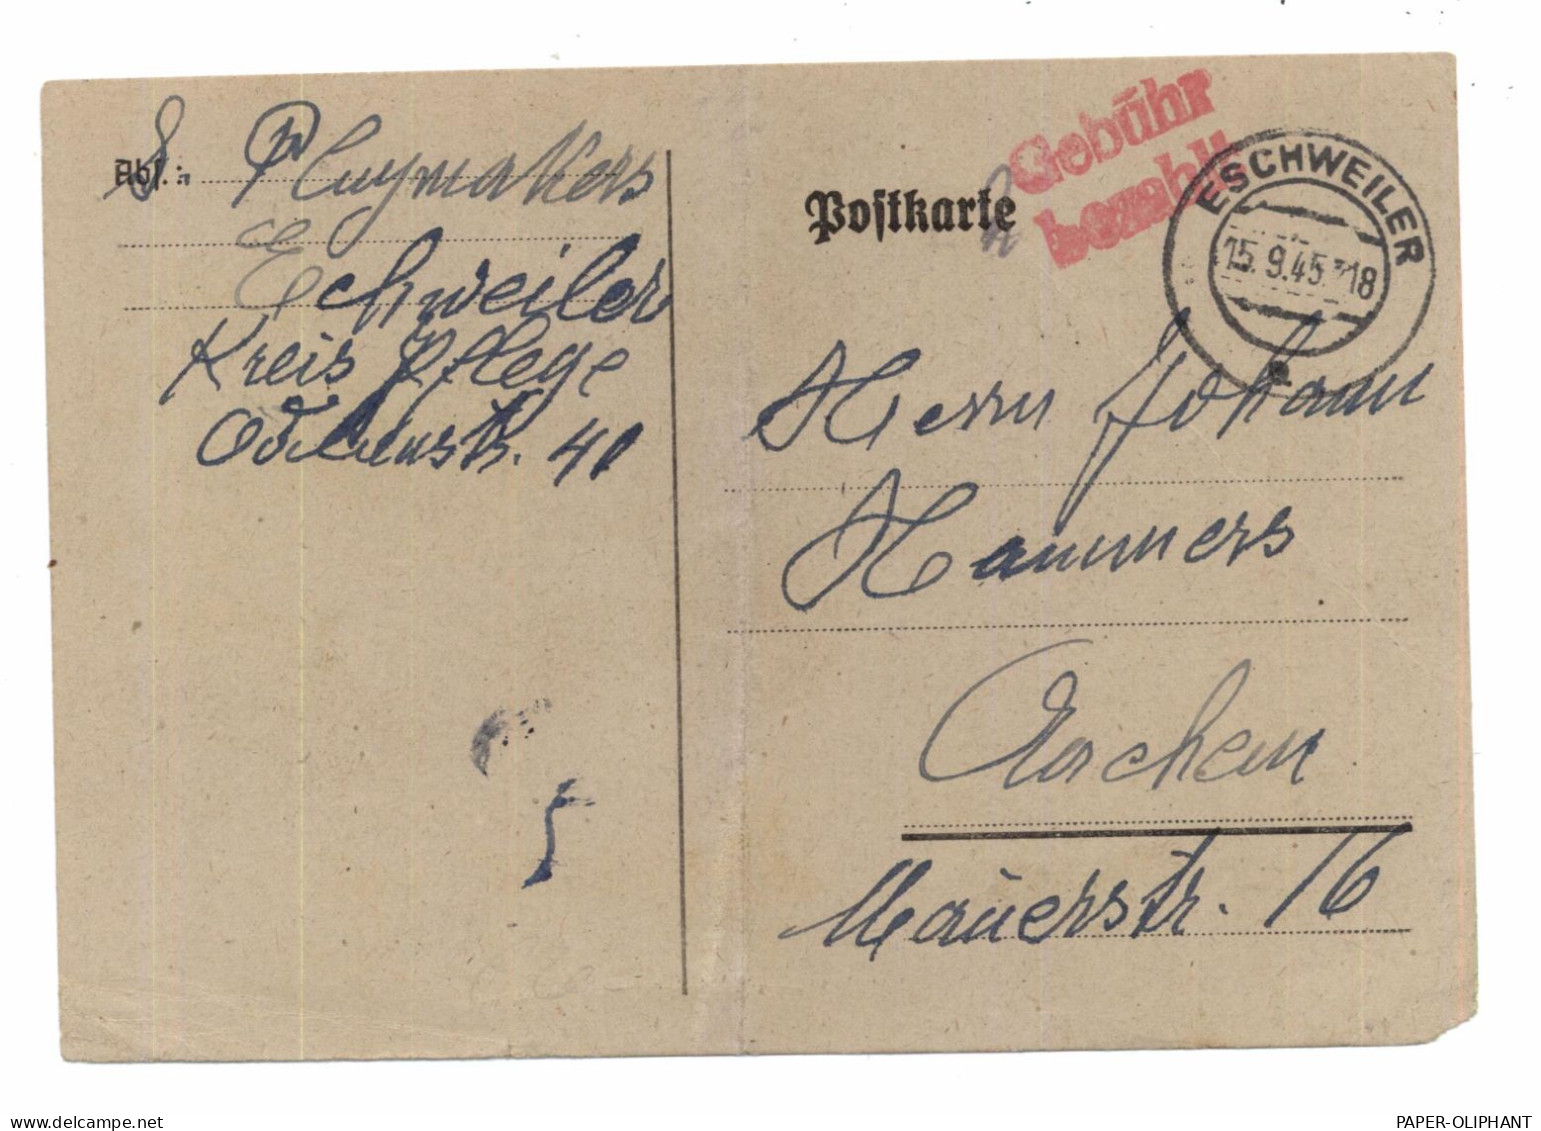 Abs.: P Pluymakers
Eschweiler
Kreis Pflege
str. 41
Postkarte
Gebühr
bezahlt
ESCHWEILER
15.9.45-18
Herrn Johann
Hammers
Aachen
Mauerstr. 16
delcampe.net
PAPER-OLIPHANT